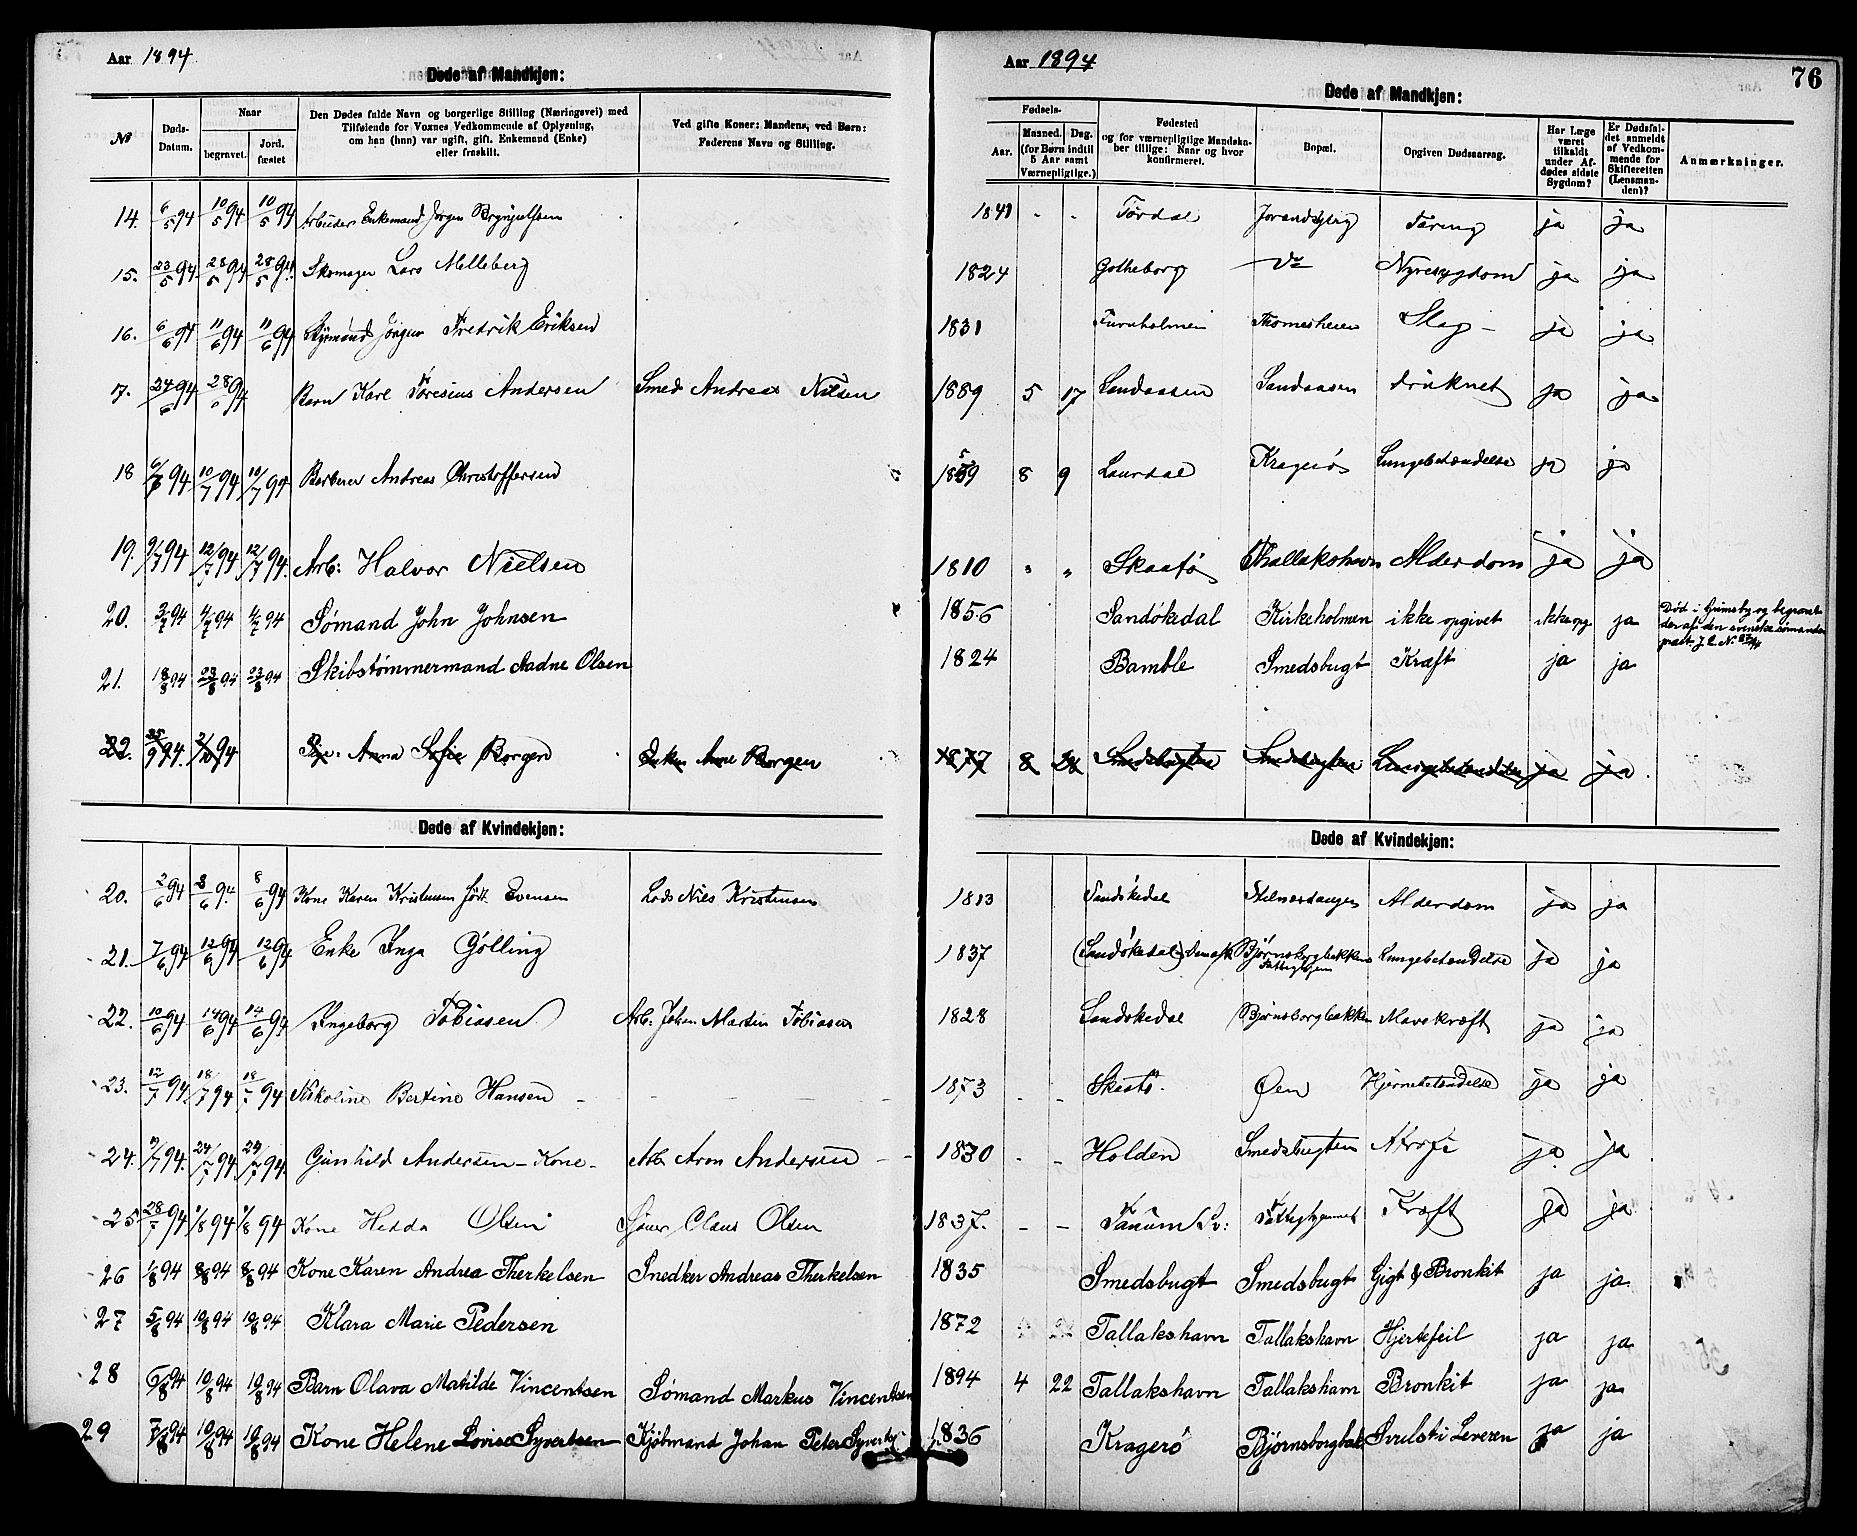 Aar 1894
Døde af Mandkjøn:
№
Døds-Datum.
Naar
begravet.
Jord. fæstet
Den Dødes fulde Navn og borgerlige Stilling (Næringsvei) med
Tilføiende for Voxnes Vedkommende af Oplysning,
om han (hun) var ugift, gift, Enkemand (Enke)
eller fraskilt.
Ved gifte Koner: Mandens, ved Børn:
Faderens Navn og Stilling.
14. 6/5 94 10/5 94 10/5 94 Arbeider Enkemand Jørgen
15. 23/5 94 28/5 94 28/5 94 Skomager Lars Melleberg
16. 6/6 94 11/6 94 11/6 94 Sømand Jörgen Fredrik Eriksen
17. 24/6 94 28/ 94 Barn Karl Töresius Andersen Smed Andreas Nilsen
18 6/7 94 10/7 94 10/7 94 Barberer Andreas Christoffersen
19. 9/7 94 12/7 94 12/7 94. Arb: Halvor Nielsen
20. 3/2 94 4/2 94 4/2 94 Sømand John Johnsen
21. 18/8 94 23/8 94 23/8 94 Skibstømmermand Aadne Olsen
22. 25/9 94. 2/10 94 Pige: Anna Sofie Borgen Enken Anne Borgen
Døde af Kvindekjøn:
20. 2/6 94 8/6 94. 8/6 94 Kone Karen Kristensen född Evensen Lods Niels Kristensen
21. 7/6 94 12/6 94 12/6 94 Enke Inga Gölling
22. 10/6 94 14/6 94 14/6 94 Ingeborg Tobiasen Arb: Johan Martin Tobiasen
23. 12/7 94 18/7 94 18/7 94 Nikoline Bertine Hansen
24. /7 94. 24/7 94 24/7 94 Gunhild Andersen - Kone - Arb. Aron Andersen
25 28/7 94 1/8 94 1/8 94 Kone Hedda Olsen Claus Olsen
26 1/8 94 8/8 94 8/8 94 Kone Karen Andrea Therkelsen Snedker Andreas Therkelsen
27 5/8 94 10/8 94 10/8 94 Klara Marie Pedersen
28 6/8 94 10/8 94 10/8 94 Barn Olava Matilde Vincentsen Sømand Markus Vincentsen
29 7/8 94 10/8 94 10/8 94 Kone Helene Lovise Syvertsen Kjøbmand Johan Peter
Aar 1894
76
Døde af Mandkjøn:
Fødsels-
Aar.
Maaned. Dag.
(for Børn indtil
5 Aar samt
Værnepligtige.)
Fødested
og for værnepligtige Mandska-
ber tillige: Naar og hvor
konfirmeret.
Bopæl.
Opgiven Dødsaarsag.
Har Læge
været
tilkaldt
under Af-
dødes sidste
Sygdom?
Er Dødsfal-
det anmeldt
af Vedkom-
mende for
Skifteretten
(Lensman-
den)?
Anmærkninger.
1841 Tördal Jorandsbjerg Tæring ja ja
1824 Gotheborg Do Nyresygdom ja ja
1831 Furuholmen Thomesheien Slag - ja ja
1889 5 17 Sandaasen Sandaasen druknet ja ja
1859 8 9 Laurdal Kragerö Lungebetændelse ja ja
1810 " " Skaatö Thallakshavn Alderdom ja ja
1856 Sandökedal Kirkeholmen ikke opgivet ikke opg. ja Död i Grimsby og begravet
der af den svenske sømands
præst. J. C. No
1824 Bamble Smedsbugt Kræft ja ja
1877 8 24 Smedsbugten Smedsbugten Lungebetændelse ja ja
Døde af Kvindekjøn:
1813 Sandökedal Alderdom ja ja
1837 (Sandökedal) Björnsborgbakken Fattighjem Lungebetændelse ja ja
1828 Sandökedal Björnsborgbakken Mavekræft ja ja
1873 - - Skaatö. Øen Hjernebetændelse ja ja
1830 - - Holden Smedsbugten Atrofi ja ja
1837. - - Tanum Sv: Kræft ja ja
1835 Smedsbugt Smedsbugt Gigt & Bronkit ja ja
1872 Tallakshavn Tallakshavn Hjertefeil ja ja
1894 4 22 Tallakshavn Tallakshavn Bronkit ja ja
1836 Kragerö Björnsborgbak Svulst i Leveren ja ja